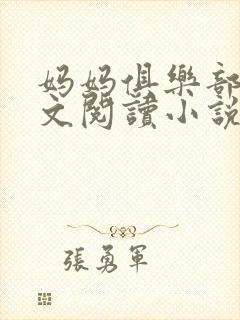 妈妈俱樂部
文閱讀小説
張勇軍